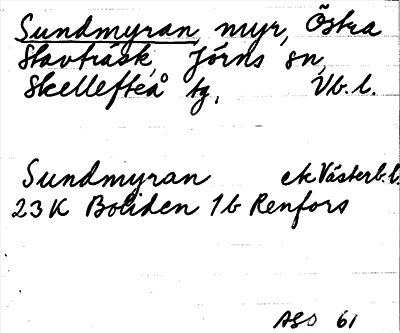 Sundmyran, myr, Östra
Stavträsk, Jörns sn,
Skellefteå tg, Vb. l.
Sundmyran ek Västerb. l.
23 K Boliden 1 b Renfors
ASO 61